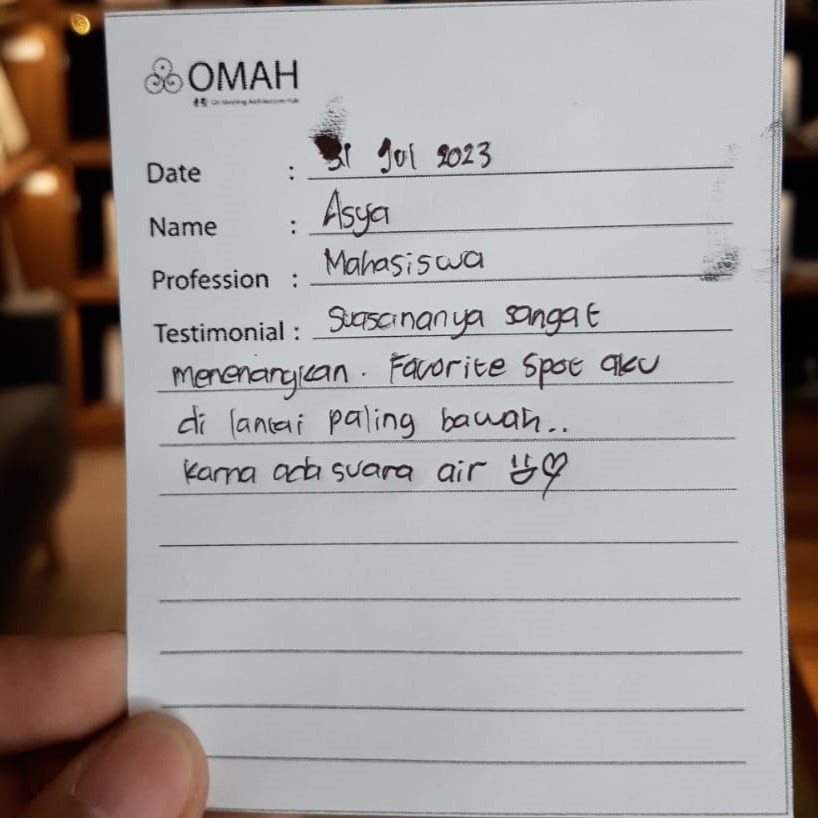 OMAH
Date : 31 Jul 2023
Name : Asya
Profession : Mahasiswa
Testimonial : Suasananya sangat
menenangkan. Favorite spot aku
di lantai paling bawah..
karna ada suara air